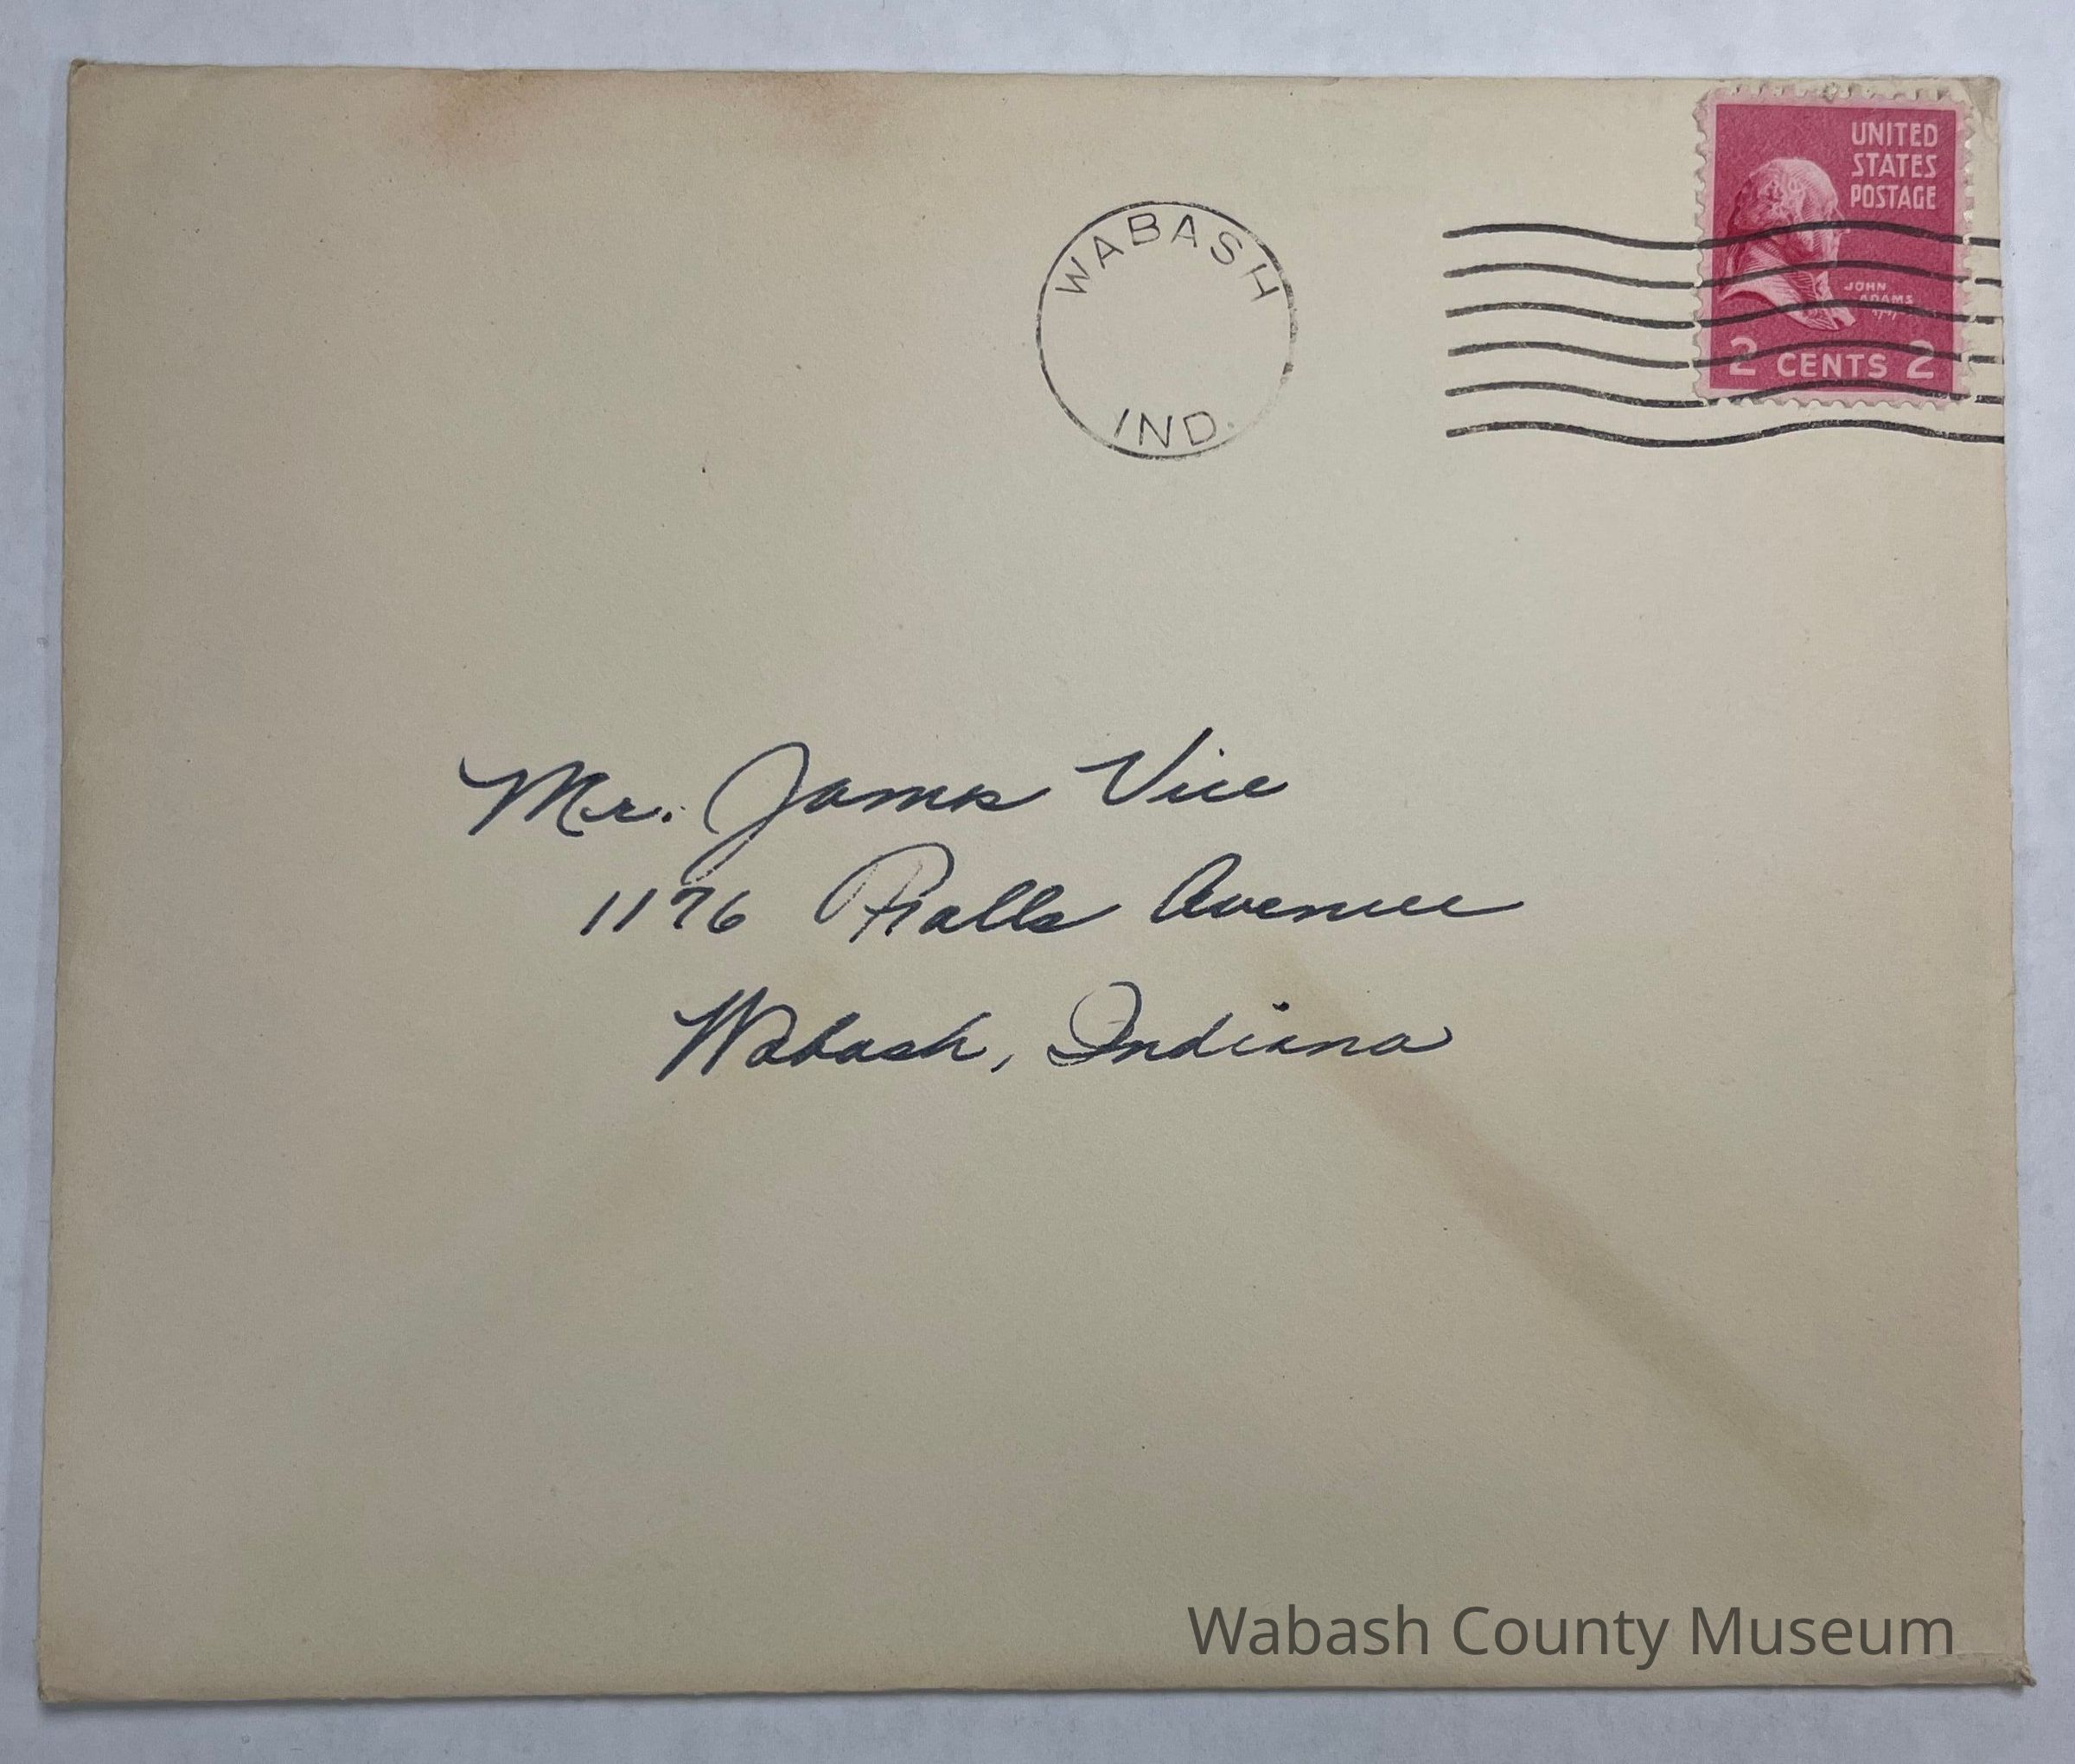 WABASH
IND.
UNITED
STATES
POSTAGE
JOHN
ADAMS
2 CENTS 2
Mr. James Vice
1176 Ralls Avenue
Wabash, Indiana
Wabash County Museum